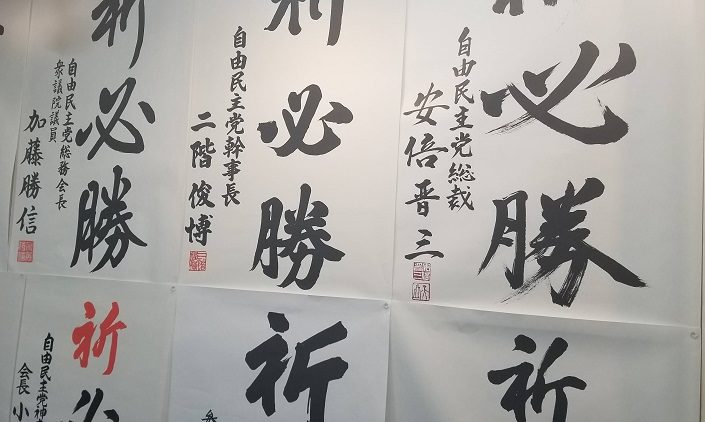 祈必勝
自由民主党総裁
安倍晋三
祈必勝
自由民主党幹事長
二階俊博
祈必勝
自由民主党総務会長
衆議院議員
加藤勝信
祈
祈
祈必
自由民主党神
会長 小